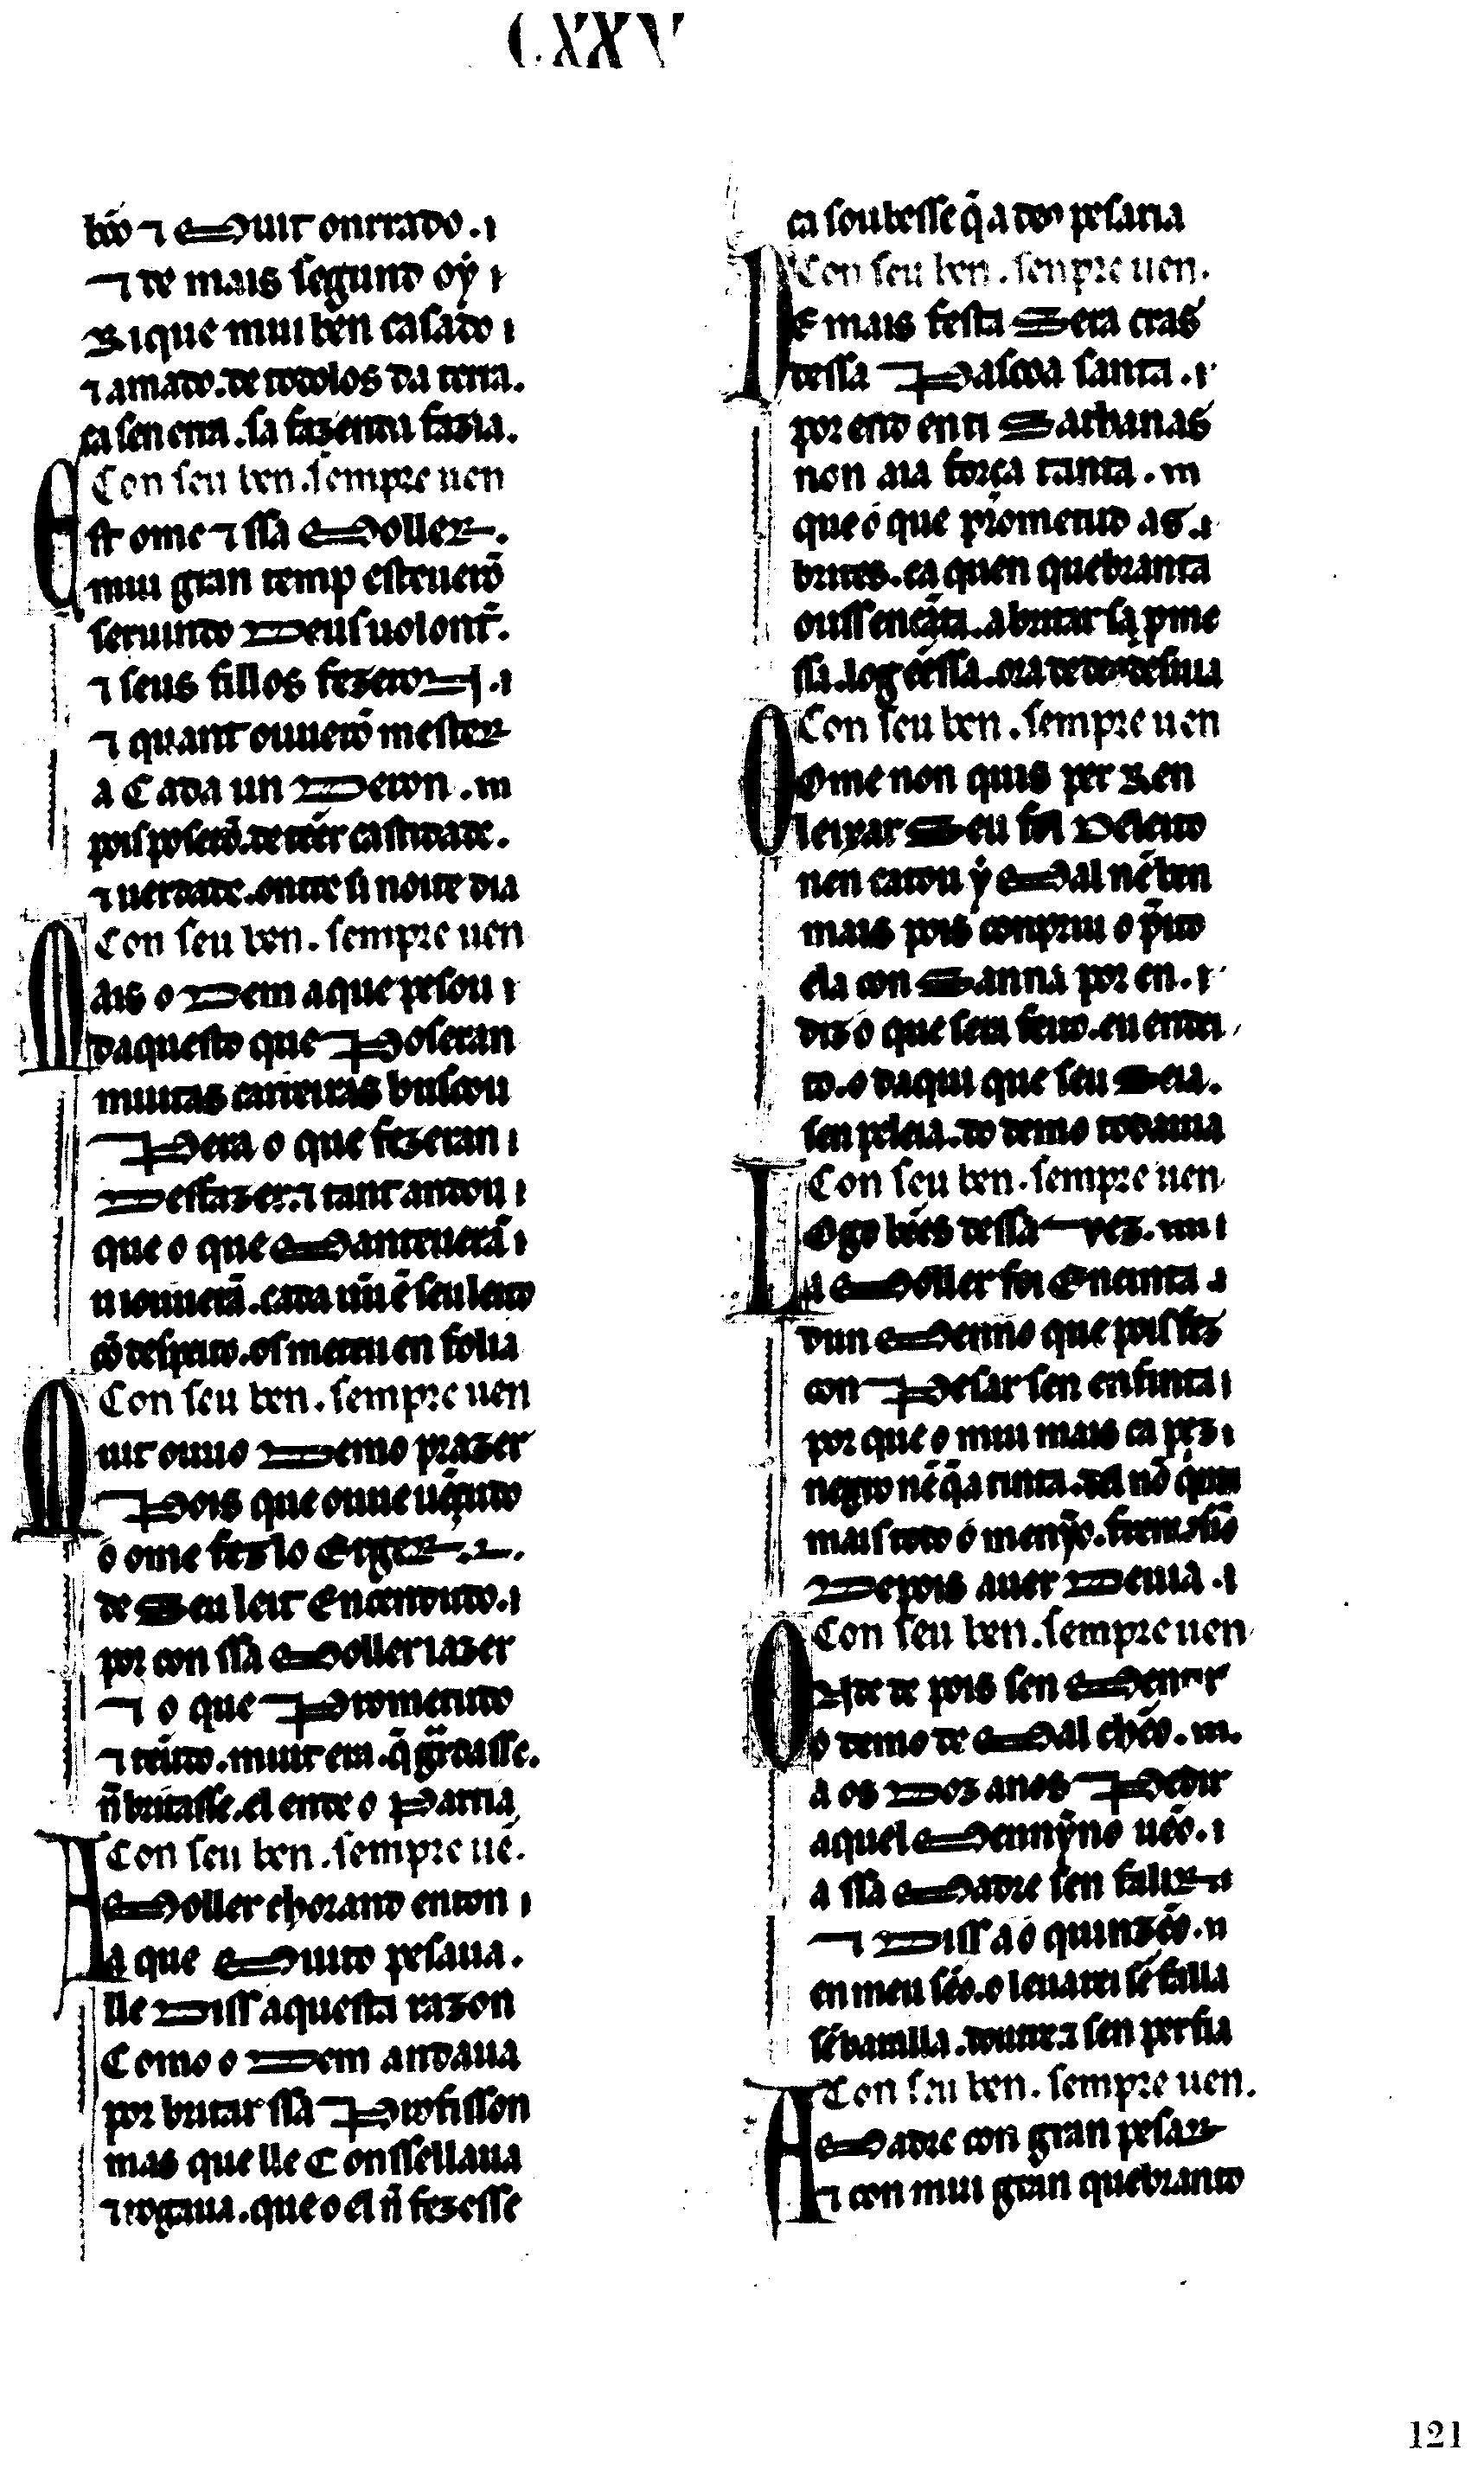 CXXV
bõo ⁊ Muit onrrado.
⁊ de mais segund oý
Rique mui ben casado
⁊ amado. de todolos da terra.
ca sen erra. sa fazenda fazia.
Con seu ben. sempre uen
Est ome ⁊ ssa Moller.
mui gran temp esteuerõ
seruindo Deus uolont̃.
⁊ seus fillos fezeron.
⁊ quant ouuerõ mester
a Cada un Deron.
pois poserõ. de tẽer castidade.
⁊ uerdade. ontre si noite dia
Con seu ben. sempre uen
Mais o Dem a que pesou
daquesto que Poseran
muitas carreiras buscou
Pera o que fezeran
Desfazer. ⁊ tant andou
que o que Manteuerã
u iouuerã. cada uũ ẽ seu leito
cõ despeito. os meteu en folia
Con seu ben. sempre uen
Muit ouuo Demo prazer
Pois que ouue uẽçudo
o ome fez lo Erger.
de Seu leit Encendudo.
por con ssa Moller iazer
⁊ o que Prometudo
⁊ tẽudo. muit era. q̃ gũardasse.
ñ britasse. el ende o Partia
Con seu ben. sempre uẽ.
A Moller chorand enton
a que Muito pesaua.
lle Diss aquesta razon
Como o Dem andaua
por britar ssa Profisson
mas que lle Conssellaua
⁊ rogaua. que o el ñ fezesse
ca soubesse q̃ a deus pesaria
Con seu ben. senpre uen.
E mais festa Sera cras
dessa Pascoa santa.
por end en ti Sathanas
non aia força tanta.
que o que prometud as.
brites. ca quen quebranta
ou ssencãta. a britar sa pme
ssa. log essa. ora de deus desuia
Con seu ben. sempre uen
O Ome non quis per Ren
leixar Seu fol Deleito
nen catou ý Mal nẽ ben
mais pois conpriu o p̃ito
ela con Sanna por en.
diz o que sera feito. eu endei
to. o daqui que seu Seia.
sen peleia. do demo todauia
Con seu ben. sempre uen
Logo bẽes dessa vez.
a Moller foi Encinta
dun Menino que pois fez
con Pesar sen enfinta
por que o mui mais ca pez
negro nẽ q̃ a tinta. del nõ quinta
mais todo o menỹo. fremosỹo
Depois auer Deuia.
Con seu ben. sempre uen
Onde depois sen Mentir
o demo de Mal chẽo.
a os Doz anos Pedir
aquel Menỹno uẽo.
a ssa Madre sen falir
⁊ Diss a o quinzẽo.
en meu sẽo. o leuarei sẽ falla
sẽ baralla. doute ⁊ sen perfia
Con seu ben. sempre uen.
A Madre con gran pesar
⁊ con mui gran quebranto
121